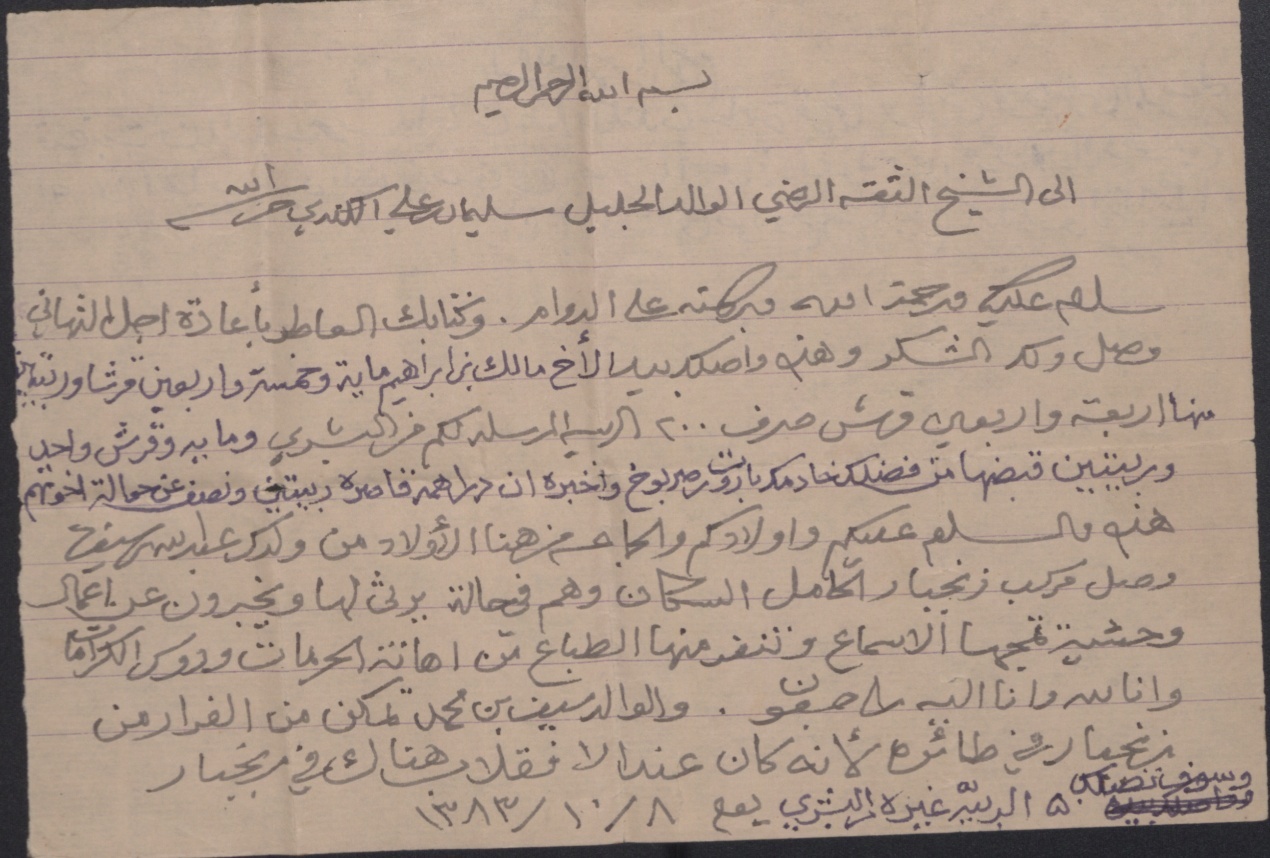 بسم الله الرحمن الرحيم
الى الشيخ الثقة الرضي الوالد الجليل سليمان بن علي الكندي حرسه الله
سلام عليك ورحمة الله وبركته على الدوام . وكتابك العاطر بأعادة اجمل التهاني
وصل ولك الشكر وهذه واصلكم بيد الأخ مالك بن ابراهيم ماية وخمسة واربعين قرشا وربيتين
منها اربعة واربعين قرش صرف ٢٠٠ الربيه المرسله لكم من البشري ومايه وقرش واحد
وربيتين قبضها من فضلك خادمكم باروت بن صربوخ واخبره ان دراهمه قاصره ربيتين ونصف عن حوالة اخوتهم
هذه والسلام عليكم واولادكم والجماعه من هنا الأولاد من ولدك عبدالله بن سيف
وصل مركب زنجبار الحامل السكان وهم في حالة يرثى لها ويخبرون عن اعمال
وحشية تمجها الاسماع وتنفر منها الطباع من اهانة الحرمات ودوس الكرامات
وانا لله وانا اليه راجعون . والوالد سيف بن محمد تمكن من الفرار من
زنجبار في طائرة لأنه كان عند الانقلاب هناك في زنجبار
وسوف تصلكم ٥٠ الربيّه غيره من البشري يوم ٨/١٠/١٣٨٣